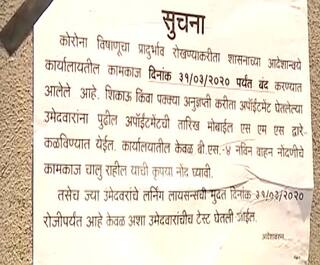 सुचना
कोरोना विषाणूचा प्रादुर्भाव रोखण्याकरीता शासनाच्या आदेशान्वये
कार्यालयातील कामकाज दिनांक ३१/०३/२०२० पर्यंत बंद करण्यात
आलेले आहे. शिकाऊ किंवा पक्क्या अनुज्ञप्ती करीता अपॉईंटमेंट घेतलेल्या
उमेदवारांना पुढील अपॉईंटमेंटची तारिख मोबाईल एस एम एस द्वारे
कळविण्यात येईल. कार्यालयातील केवळ बी एस. ४ नविन वाहन नोंदणीचे
कामकाज चालु राहील याची कृपया नोंद घ्यावी.
तसेच ज्या उमेदवरांचे लर्निंग लायसन्सची मुदत दिनांक ३१/०३/२०२०
रोजीपर्यंत आहे केवळ अशा उमेदवारांचीच टेस्ट घेतली जाईल.
आदेशावरुन